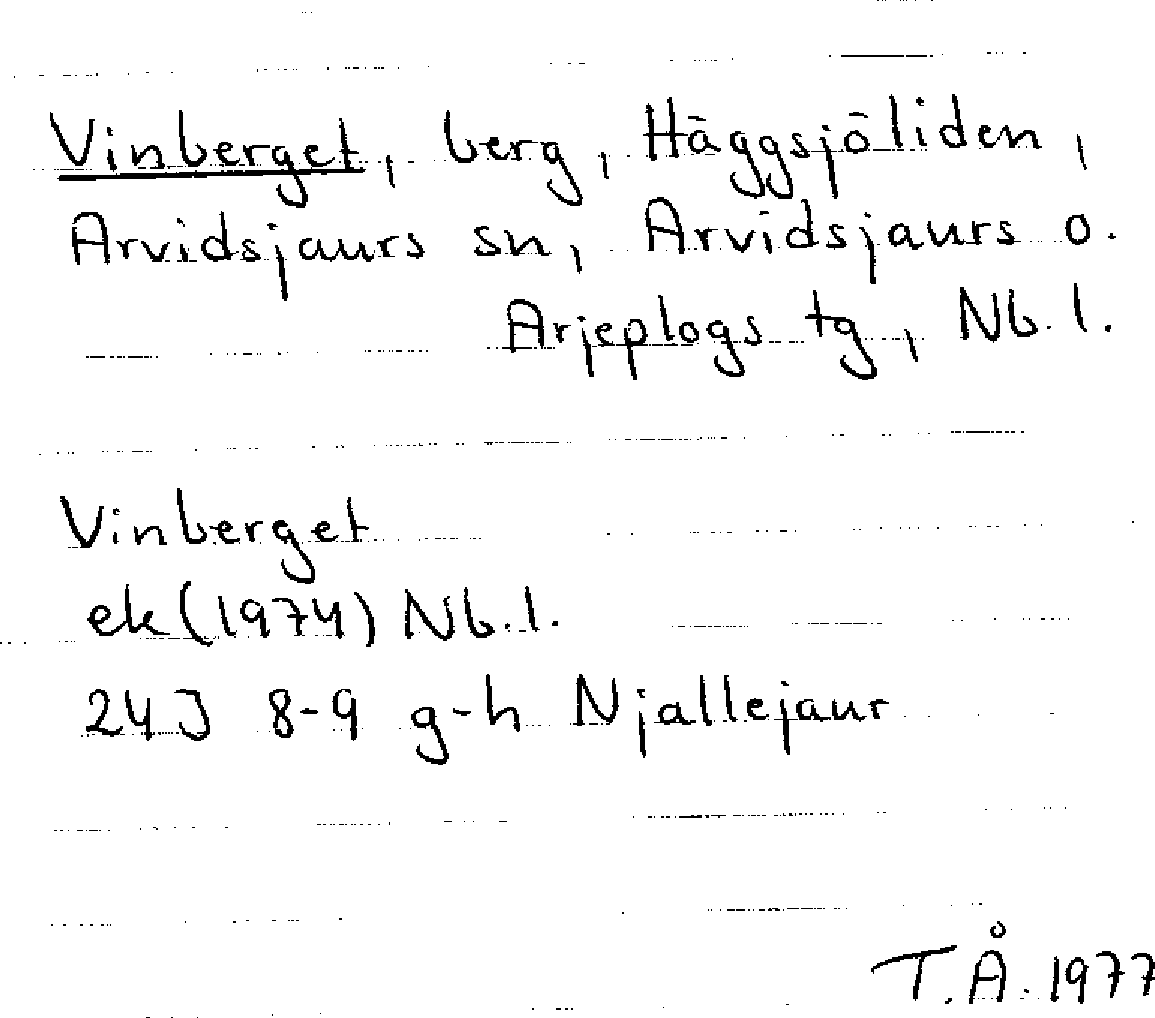 Vinberget, berg, Häggsjöliden,
Arvidsjaurs sn, Arvidsjaurs o.
Arjeplogs tg, Nb. l.
Vinberget
ek (1974) Nb. l.
24J 8-9 g-h Njallejaur
T.Å. 1977